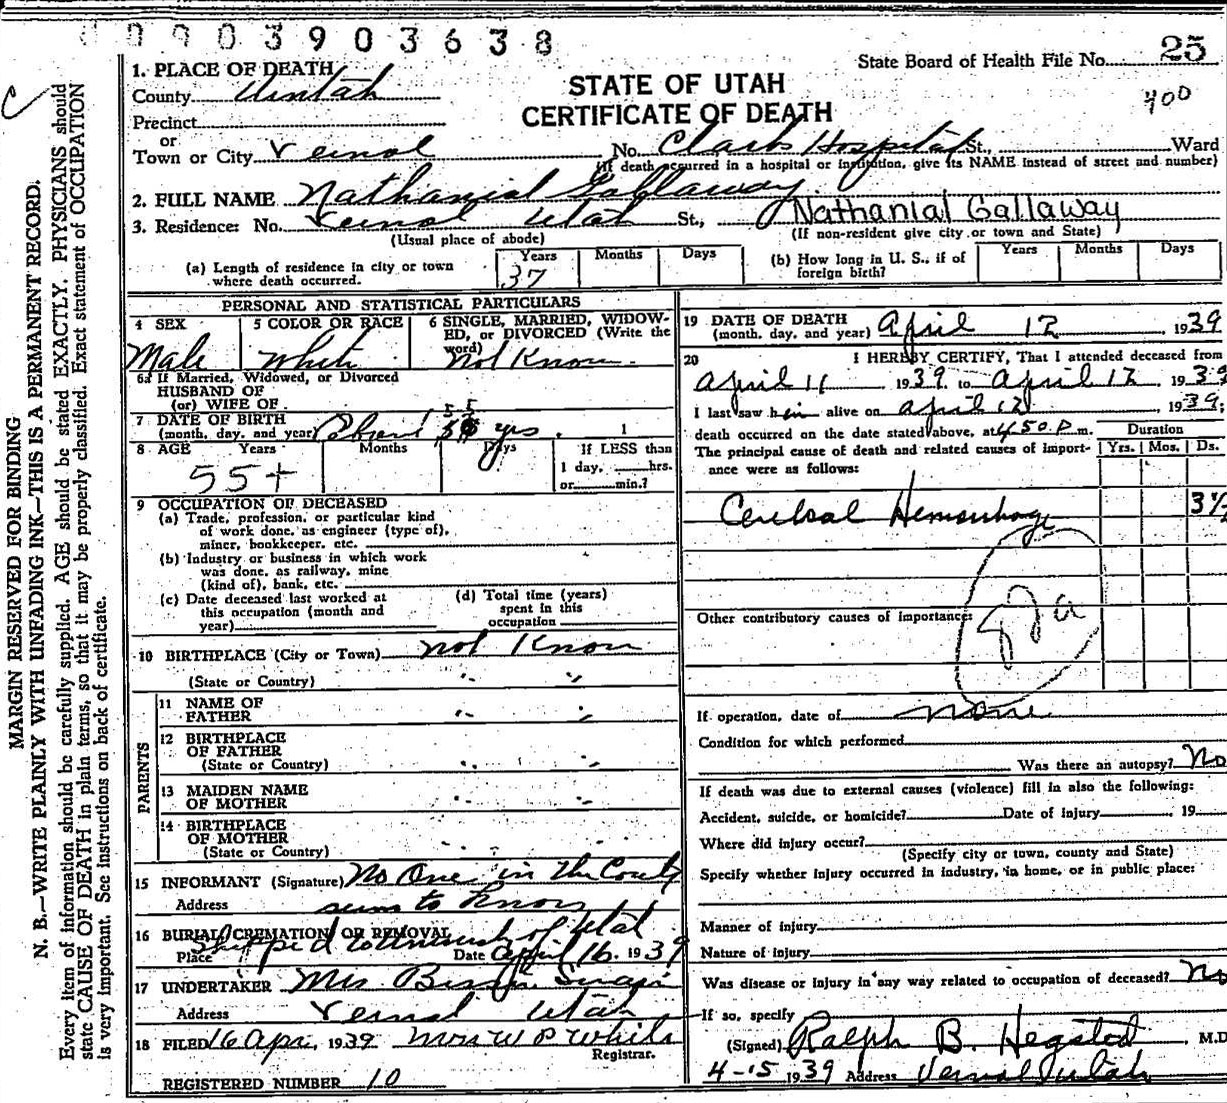 0903903638
State Board of Health File No. 25
400
STATE OF UTAH
CERTIFICATE OF DEATH
1. PLACE OF DEATH
County Uintah
Precinct
or
Town or City Vernal No. Clark Hospital St., Ward
(If death occurred in a hospital or institution, give its NAME instead of street and number)
2. FULL NAME Nathanial Gallaway
Nathanial Gallaway
3. Residence: No. Vernal Utah St.,
(Usual place of abode)
(If non-resident give city or town and State)
(a) Length of residence in city or town where death occurred. Years 37 Months Days
(b) How long in U. S., if of foreign birth? Years Months Days
PERSONAL AND STATISTICAL PARTICULARS
4 SEX Male
5 COLOR OR RACE White
6 SINGLE, MARRIED, WIDOWED, OR DIVORCED (Write the word) Not Know
6a If Married, Widowed, or Divorced
HUSBAND OF
(or) WIFE OF
7 DATE OF BIRTH
(month, day, and year) About 55 yrs.
8 AGE Years 55+ Months Days
If LESS than
1 day, hrs.
or min.?
9 OCCUPATION OF DECEASED
(a) Trade, profession, or particular kind
of work done, as engineer (type of),
miner, bookkeeper, etc.
(b) Industry or business in which work
was done, as railway, mine
(kind of), bank, etc.
(c) Date deceased last worked at
this occupation (month and
year)
(d) Total time (years)
spent in this
occupation
10 BIRTHPLACE (City or Town) not Know
(State or Country) " "
PARENTS
11 NAME OF
FATHER " "
12 BIRTHPLACE
OF FATHER
(State or Country) " "
13 MAIDEN NAME
OF MOTHER " "
14 BIRTHPLACE
OF MOTHER
(State or Country)
15 INFORMANT (Signature) No One in the County
Address seems to know
16 BURIAL, CREMATION OR REMOVAL
Place Shipped to University of Utah
Date April 16. 1939
17 UNDERTAKER Mrs
Address Vernal Utah
18 FILED 16 Apr, 1939 Mrs W P White
Registrar.
REGISTERED NUMBER 10
19 DATE OF DEATH
(month, day, and year) April 12 1939
20 I HEREBY CERTIFY, That I attended deceased from
April 11 1939. to April 12 1939
I last saw him alive on April 12, 1939.
death occurred on the date stated above, at 4 50 P m.
The principal cause of death and related causes of importance were as follows:
Duration
Yrs. Mos. Ds.
Cerebral Hemorrhage 3½
Other contributory causes of importance:
82a
If operation, date of none
Condition for which performed
Was there an autopsy? No
If death was due to external causes (violence) fill in also the following:
Accident, suicide, or homicide? Date of injury 19
Where did injury occur?
(Specify city or town, county and State)
Specify whether injury occurred in industry, in home, or in public place:
Manner of injury
Nature of injury
Was disease or injury in any way related to occupation of deceased? No
If so, specify
(Signed) Ralph B. Hegsted, M.D
4-15 1939 Address Vernal Utah
MARGIN RESERVED FOR BINDING
N. B.—WRITE PLAINLY WITH UNFADING INK—THIS IS A PERMANENT RECORD.
Every item of information should be carefully supplied. AGE should be stated EXACTLY. PHYSICIANS should
state CAUSE OF DEATH in plain terms, so that it may be properly classified. Exact statement of OCCUPATION
is very important. See instructions on back of certificate.